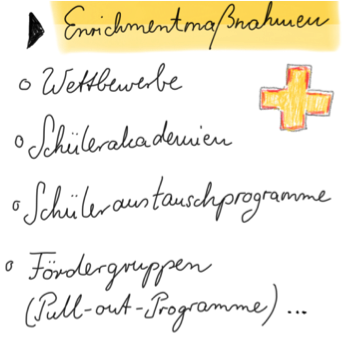 Enrichmentmaßnahmen
o Wettbewerbe
o Schülerakademien
o Schüleraustauschprogramme
o Fördergruppen
(Pull-out-Programme) ...